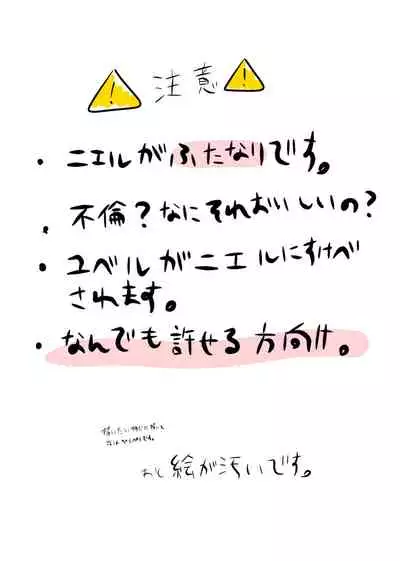 注意
・ニエルがふたなりです。
・不倫?なにそれおいしいの?
・ユベルがニエルにすけべ
されます。
・なんでも許せる方向け。
あと絵が汚いです。